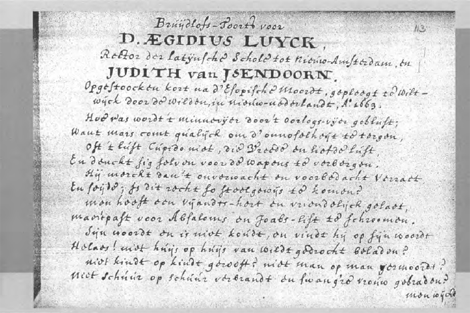 Bruijdlofs-Toorts voor
113
D. ÆGIDIUS LUYCK,
Rektor der latynsche Schole tot Nieuw-Amsterdam, en
JUDITH van JSENDOORN.
Opgestoocken kort na d'Esopische Moordt, gepleegt te Wilt-
wijck door de Wilden, in nieuw-nederlandt, Aº 1663.
Hoe ras wordt 't minnevijer door 't oorlogs-vijer geblust;
Want mars comt qualijck om d'onnoselheijt te tergen,
Oft 't lust Cupido niet, die Vrede en liefde lust
En denckt sig selven voor de wapens te verbergen.
Hij merckt dan 't onverwacht en voorbedacht Verraet
En seijde; Is dit recht so te komen?
men heeft een vijandts-hert en vriendelijck gelaet,
past voor Absaloms en Joabs-list te schroomen.
Sijn woordt en is niet koudt, en vindt hij op sijn woordt
Helaes! niet huijs op huijs van wildt gedrocht beladen?
niet kindt op kindt gerooft? niet man op man vermoordt?
niet Schuur op schuur verbrandt en swangre vrouw gebraden?
men wijckt